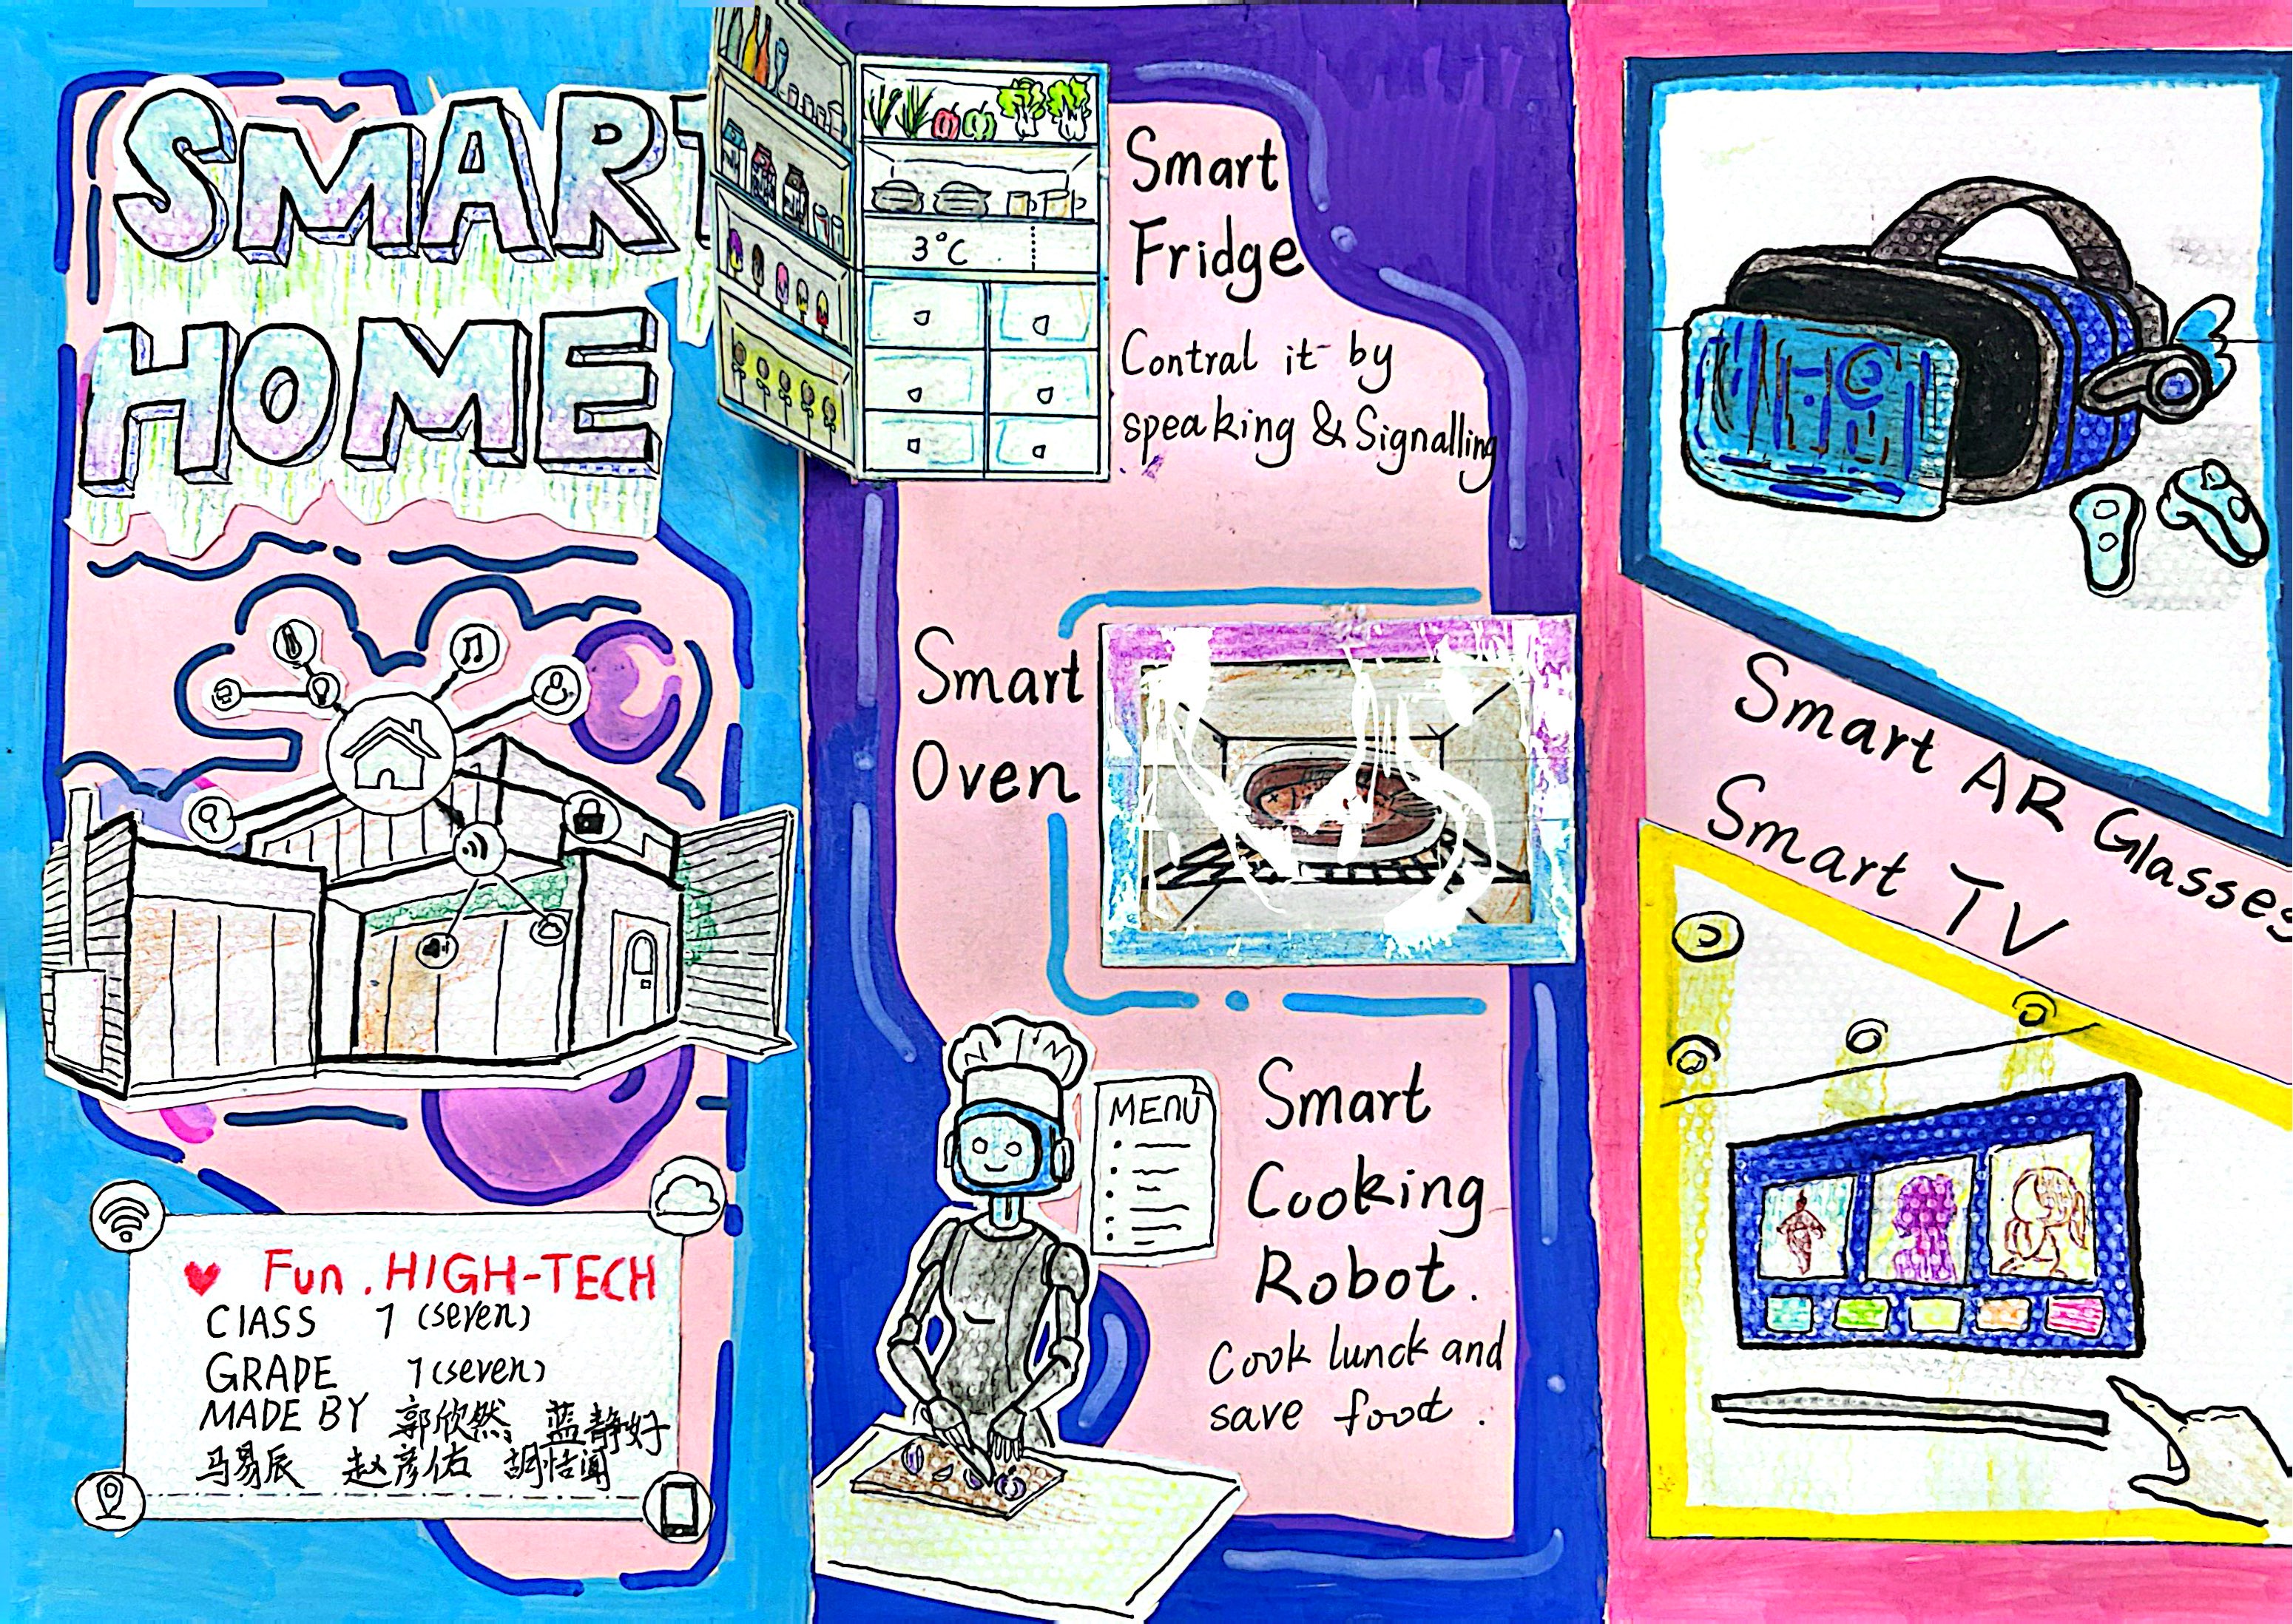 SMART
HOME
Fun. HIGH-TECH
CLASS 7 (seven)
GRADE 7 (seven)
MADE BY 郭欣然 蓝静好
马易辰 赵彦佑 胡恬闻
3°C
Smart
Fridge
Contral it by
speaking & Signalling
Smart
Oven
MENU
Smart
Cooking
Robot.
Cook lunch and
save food.
Smart AR Glasses
Smart TV